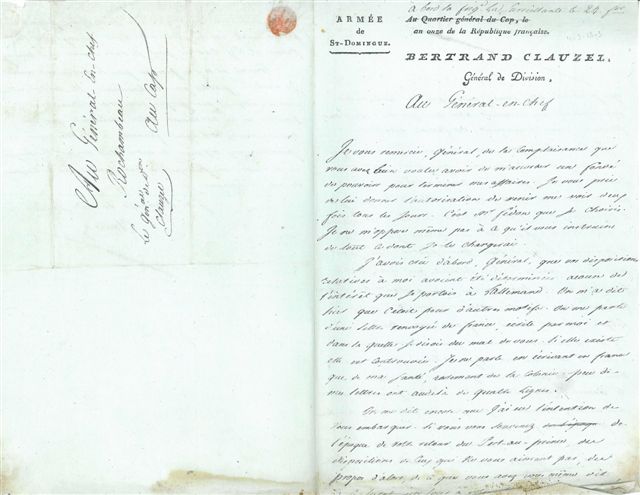 Au Général en chef
Rochambeau
Au Cap
Le Gén.al de D.on
Clauzel
ARMÉE
de
ST-DOMINGUE.
à bord la frég. la Surveillante le 24
Au Quartier général du Cap, le
an onze de la République française.
BERTRAND CLAUZEL,
Général de Division,
Au Général-en-chef
Je vous remercie, Général, de la complaisance que
vous avez bien voulu avoir de m'accorder un fondé
de pouvoirs pour terminer mes affaires. Je vous prie
de lui donner l'autorisation de venir me voir deux
fois tous les jours. C'est Mr que je choisis.
Je ne m'oppose même pas à ce qu'il vous instruise
de tout ce dont je le chargerai.
J'avois cru d'abord, Général, que vos dispositions
relatives à moi avoient été déterminées à cause de
l'intérêt que je portois à Lallemand. On m'a dit
hier que c'étoit pour d'autres motifs. On me parle
d'une lettre renvoyée de france, écrite par moi et
dans laquelle je dirois du mal de vous. Si elle existe
elle est controuvée. Je ne parle en écrivant en france
que de ma santé, rarement de la Colonie. peu de
mes lettres ont au delà de quatre lignes.
On me dit encore que j'ai eu l'intention de
vous embarquer. Si vous vous souvenez
l'époque de votre retour du Port-au-prince, des
dispositions de ceux qui ne vous aimant pas, des
propos d'alors, de ce que vous avez vous même dit